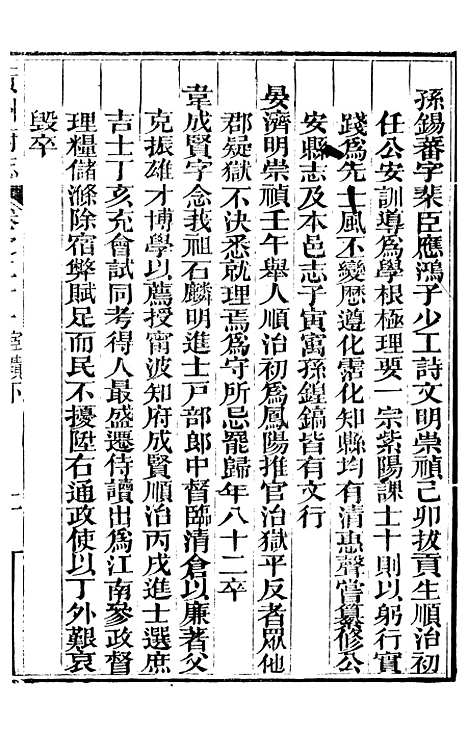 孫錫蕃字棐臣應鴻子少工詩文明崇禎己卯拔貢生順治初
任公安訓導爲學根極理要一宗紫陽課士十則以躬行實
踐爲先士風不變歷遵化霑化知縣均有清惠聲嘗纂修公
安縣志及本邑志子寅寓孫鍠鎬皆有文行
晏濟明崇禎壬午舉人順治初爲鳳陽推官治獄平反者眾他
郡疑獄不決悉就理焉爲守所忌罷歸年八十二卒
韋成賢字念我祖石麟明進士戸部郎中督臨清倉以廉著父
克振雄才博學以薦授甯波知府成賢順治丙戌進士選庶
吉士丁亥充會試同考得人最盛遷侍讀出爲江南參政督
理糧儲滌除宿弊賦足而民不擾陞右通政使以丁外艱哀
毀卒
州府志 宦績下